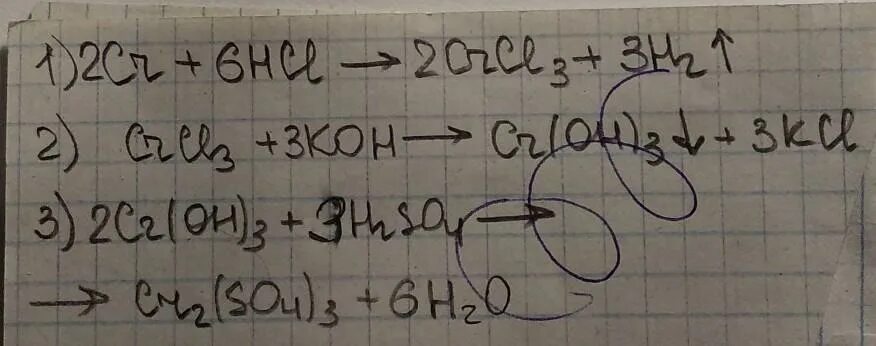 1) 2Cr + 6HCl → 2CrCl₃ + 3H₂↑
2) CrCl₃ + 3KOH → Cr(OH)₃↓ + 3KCl
3) 2Cr(OH)₃ + 3H₂SO₄ →
→ Cr₂(SO₄)₃ + 6H₂O